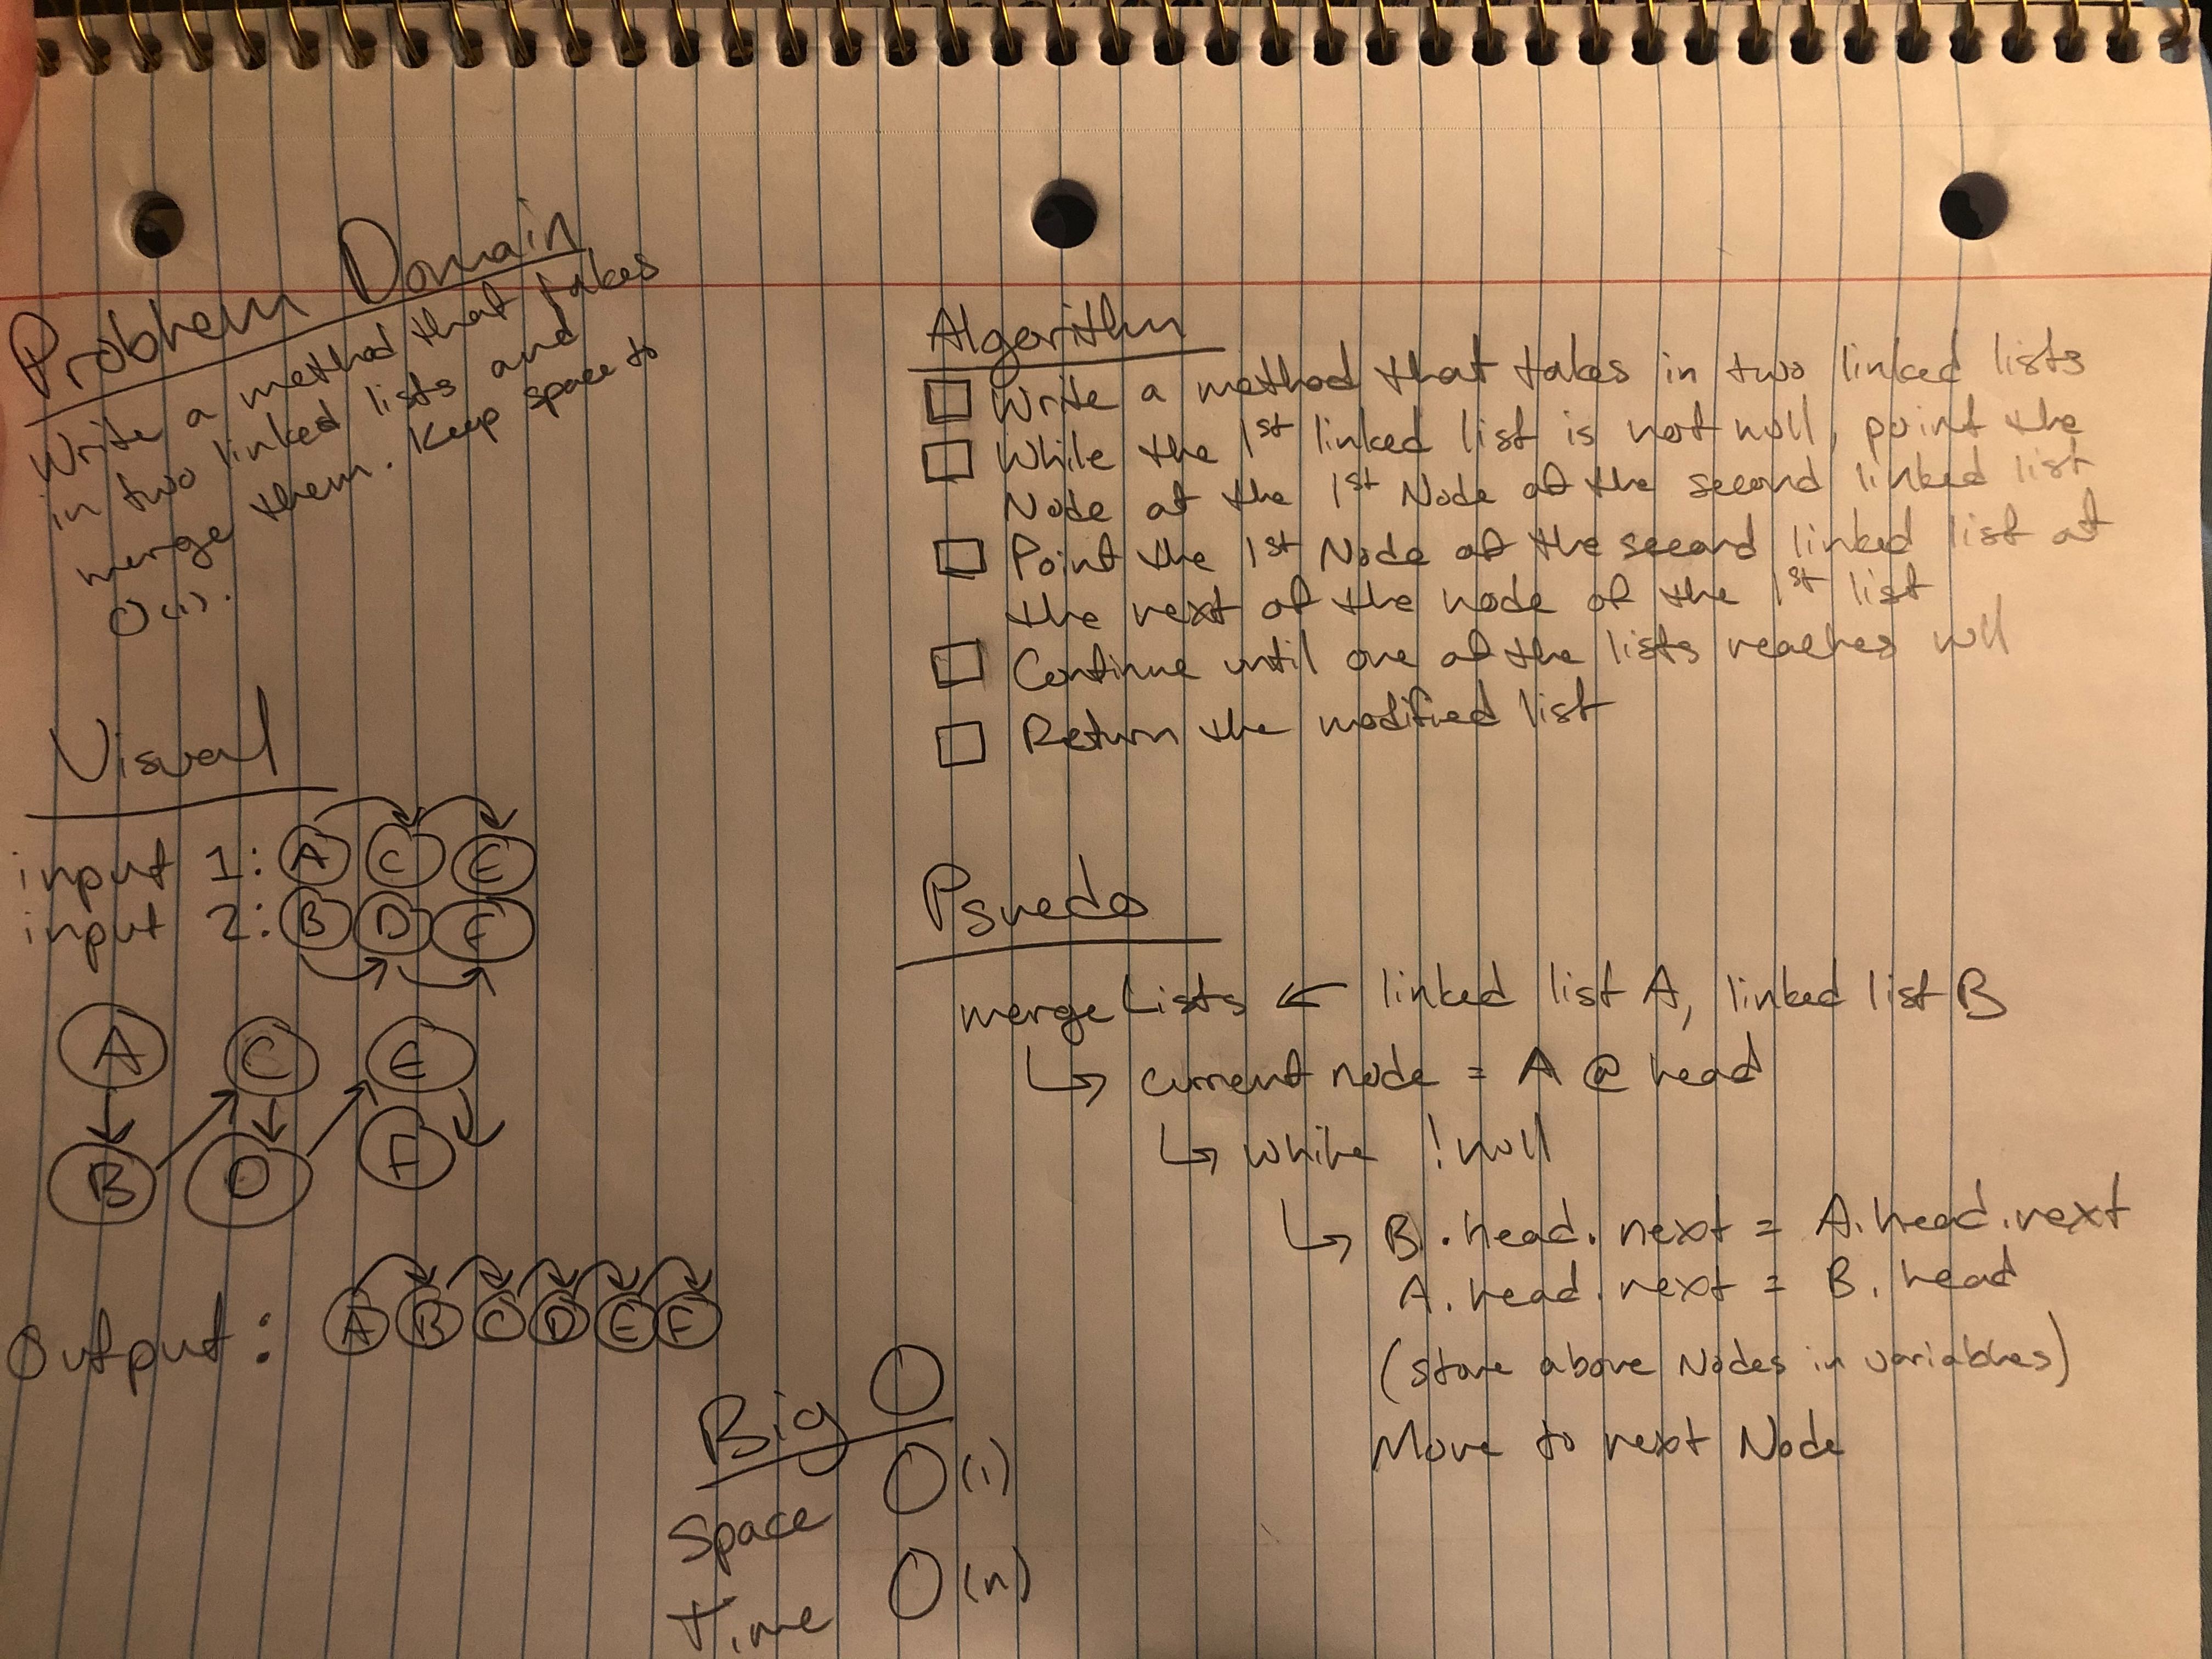 Problem Domain
Write a method that takes
in two linked lists and
merge them. Keep space to
O(1).
Visual
input 1: A C E
input 2: B D F
A C E
B D F
Output: A B C D E F
Big O
Space O(1)
Time O(n)
Algorithm
Write a method that takes in two linked lists
While the 1st linked list is not null, point the
Node at the 1st Node of the second linked list
Point the 1st Node of the second linked list at
the next of the node of the 1st list
Continue until one of the lists reaches null
Return the modified list
Psuedo
mergeLists ← linked list A, linked list B
↳ current node = A @ head
↳ while !null
↳ B.head.next = A.head.next
A.head.next = B.head
(store above Nodes in variables)
Move to next Node